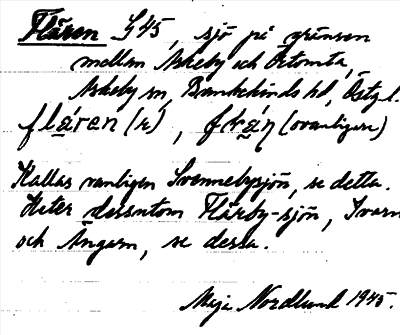 Flären G45, sjö på gränsen
mellan Askeby och Örtomta,
Askeby sn, Bankekinds hd, Östg l.
fláran (r), (ovanligare)
Kallas vanligen Svennebysjön, se detta.
Heter dessutom Flärby-sjön,
och Ängarn, se dessa.
Maja Nordlund 1945.